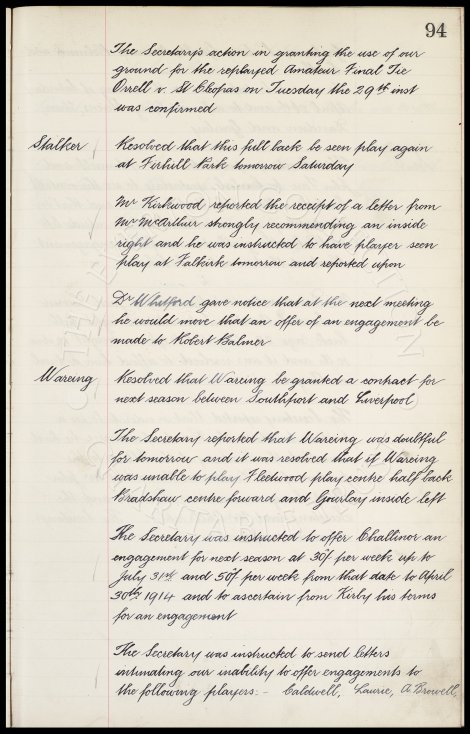 94
The Secretary's action in granting the use of our
ground for the replayed Amateur Final Tie
Orrell v. St Cleopas on Tuesday the 29th inst
was confirmed
Stalker Resolved that this full back be seen play again
at Firhill Park tomorrow Saturday
Mr Kirkwood reported the receipt of a letter from
Mr McArthur strongly recommending an inside
right and he was instructed to have player seen
play at Falkirk tomorrow and reported upon
Dr Whitford gave notice that at the next meeting
he would move that an offer of an engagement be
made to Robert Balmer
Wareing Resolved that Wareing be granted a contract for
next season between Southport and Liverpool
The Secretary reported that Wareing was doubtful
for tomorrow and it was resolved that if Wareing
was unable to play Fleetwood play centre half back
Bradshaw centre forward and Gourlay inside left
The Secretary was instructed to offer Challinor an
engagement for next season at 30/ per week up to
July 31st and 50/ per week from that date to April
30th 1914 and to ascertain from Kirby his terms
for an engagement
The Secretary was instructed to send letters
intimating our inability to offer engagements to
the following players:- Caldwell, Laurie, A Browell,